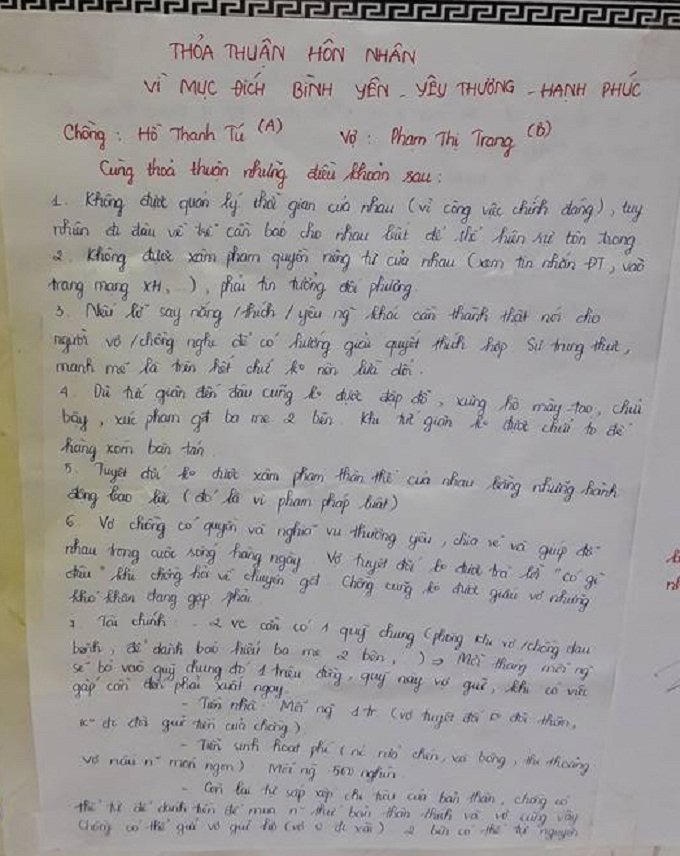 THỎA THUẬN HÔN NHÂN
VÌ MỤC ĐÍCH BÌNH YÊN - YÊU THƯƠNG - HẠNH PHÚC
Chồng : Hồ Thanh Tú (A) Vợ : Phạm Thị Trang (B)
Cùng thoả thuận những điều khoản sau :
1. Không được quản lý thời gian của nhau (vì công việc chính đáng), tuy
nhiên đi đâu về trễ cần báo cho nhau biết để thể hiện sự tôn trọng
2. Không được xâm phạm quyền riêng tư của nhau (xem tin nhắn ĐT, vào
trang mạng XH, ..), phải tin tưởng đối phương.
3. Nếu lỡ say nắng / thích / yêu ng khác cần thành thật nói cho
người vợ / chồng nghe để có hướng giải quyết thích hợp Sự trung thực,
mạnh mẽ là trên hết chứ ko nên lừa dối.
4. Dù tức giận đến đâu cũng ko được đập đồ, xưng hô mày-tao, chửi
bậy, xúc phạm gđ ba mẹ 2 bên. Khi tức giận ko được chửi to để
hàng xóm bàn tán.
5. Tuyệt đối ko được xâm phạm thân thể của nhau bằng những hành
động bạo lực (đó là vi phạm pháp luật)
6. Vợ chồng có quyền và nghĩa vụ thương yêu, chia sẻ và giúp đỡ
nhau trong cuộc sống hàng ngày Vợ tuyệt đối ko được trả lời "có gì
đâu" khi chồng hỏi về chuyện gđ. Chồng cũng ko được giấu vợ những
khó khăn đang gặp phải.
7. Tài chính : - 2 vc cần có 1 quỹ chung (phòng khi vợ/chồng đau
bệnh, để dành báo hiếu ba mẹ 2 bên, ) ⇒ Mỗi tháng mỗi ng
sẽ bỏ vào quỹ chung đó 1 triệu đồng, quỹ này vợ giữ, khi có việc
gấp cần đến phải xuất ngay.
- Tiền nhà : Mỗi ng 1 tr (vợ tuyệt đối ko đòi thêm,
đòi giữ tiền của chồng).
- Tiền sinh hoạt phí ( xà bông, thi thoảng
vợ nấu n~ món ngon) Mỗi ng 500 nghìn
- Còn lại tự sắp xếp chi tiêu của bản thân, chồng có
thể tự để dành tiền để mua n~ thứ bản thân thích và vợ cũng vậy
Chồng có thể gửi vợ giữ hộ (vợ ko đc xài) 2 bên có thể tự nguyện